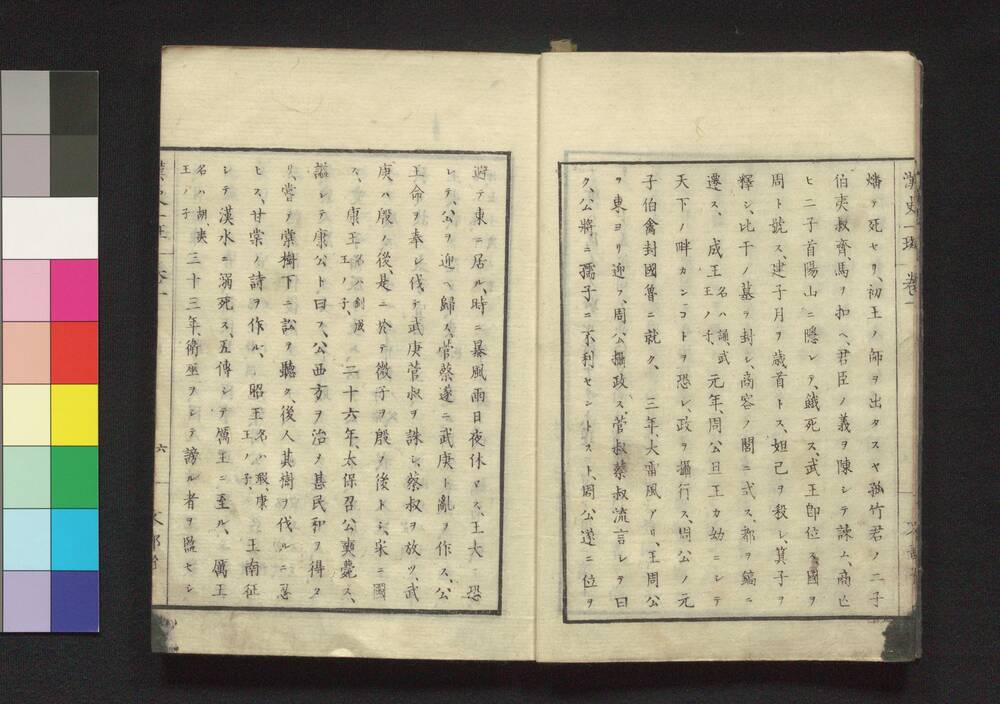 漢史一班 卷一
燔テ死セリ、初王ノ師ヲ出タスヤ孤竹君ノ二子
伯夷叔齊、馬ヲ扣ヘ、君臣ノ義ヲ陳シテ諫ム、商亡
ヒ二子首陽山ニ隱レテ、餓死ス、武王卽位ス國ヲ
周ト號ス、建子月ヲ歳首トス、妲己ヲ殺シ、箕子ヲ
釋シ、比干ノ墓ヲ封シ、商容ノ閭ニ式ス、都ヲ鎬ニ
遷ス、 成王名ハ誦武王ノ子、元年、周公旦王カ幼ニシテ
天下ノ畔カンコトヲ恐レ、政ヲ攝行ス、周公ノ元
子伯禽封國魯ニ就ク、 三年、大雷風アリ、王周公
ヲ東ヨリ迎フ、周公攝政ス、菅叔蔡叔流言シテ曰
ク、公將ニ孺子ニ不利セントスト、周公遂ニ位ヲ
避テ東ニ居ル、時ニ暴風雨日夜休マス、王大 恐
レテ、公ヲ迎ヘ歸ス、菅蔡遂ニ武庚ト亂ヲ作ス、公
王命ヲ奉シ伐テ武庚菅叔ヲ誅シ、蔡叔ヲ放ツ、武
庚ハ殷ノ後、是ニ於テ微子ヲ殷ノ後トシ、宋ニ國
ス、 康王名ハ釗成王ノ子、 二十六年、太保召公奭薨ス、
謚シテ康公ト曰フ、公西方ヲ治メ甚民和ヲ得タ
リ、嘗テ棠樹下ニ訟ヲ聽ク、後人其樹ヲ伐ルニ忍
ヒス、甘棠ノ詩ヲ作ル、 昭王名ハ瑕康王ノ子、 王南征
シテ漢水ニ溺死ス、五傳シテ厲王ニ至ル、 厲王
名ハ胡夷王ノ子 三十三年、衛巫ヲシテ謗ル者ヲ監セシ
六